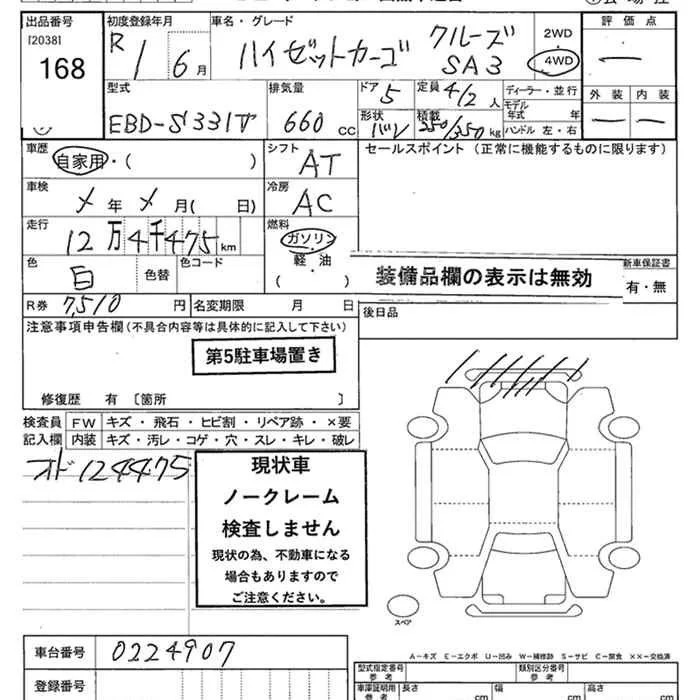 出品番号
[2038]
168
初度登録年月
R 1 6月
車名・グレード
ハイゼットカーゴ
クルーズ
SA3
2WD
4WD
評価点
―
外装 内装
― ―
型式
EBD-S331V
排気量
660 CC
ドア
5
定員
4/2人
形状
バン
積載
250/350 kg
ディーラー・並行
モデル年式 年
ハンドル 左・右
車歴
自家用・( )
シフト
AT
セールスポイント (正常に機能するものに限ります)
車検
メ年 メ月( 日)
冷房
AC
走行
12万4千475km
燃料
ガソリン
軽・油
( )
色
白
色替
色コード
装備品欄の表示は無効
新車保証書
有・無
R券 7,510円
名変期限 月 日
後日品
注意事項申告欄(不具合内容等は具体的に記入して下さい)
第5駐車場置き
修復歴 有 〔箇所 〕
検査員記入欄
FW キズ・飛石・ヒビ割・リペア跡・×要
内装 キズ・汚レ・コゲ・穴・スレ・キレ・破レ
オド124475
現状車
ノークレーム
検査しません
現状の為、不動車になる
場合もありますので
ご注意ください。
スペア
A-キズ E-エクボ U-凹み W-補修跡 S-サビ C-腐食 ××-交換済
車台番号
0224907
登録番号
型式指定番号
参考
類別区分番号
車庫証明用
参考
長さ cm
幅 cm
高さ cm